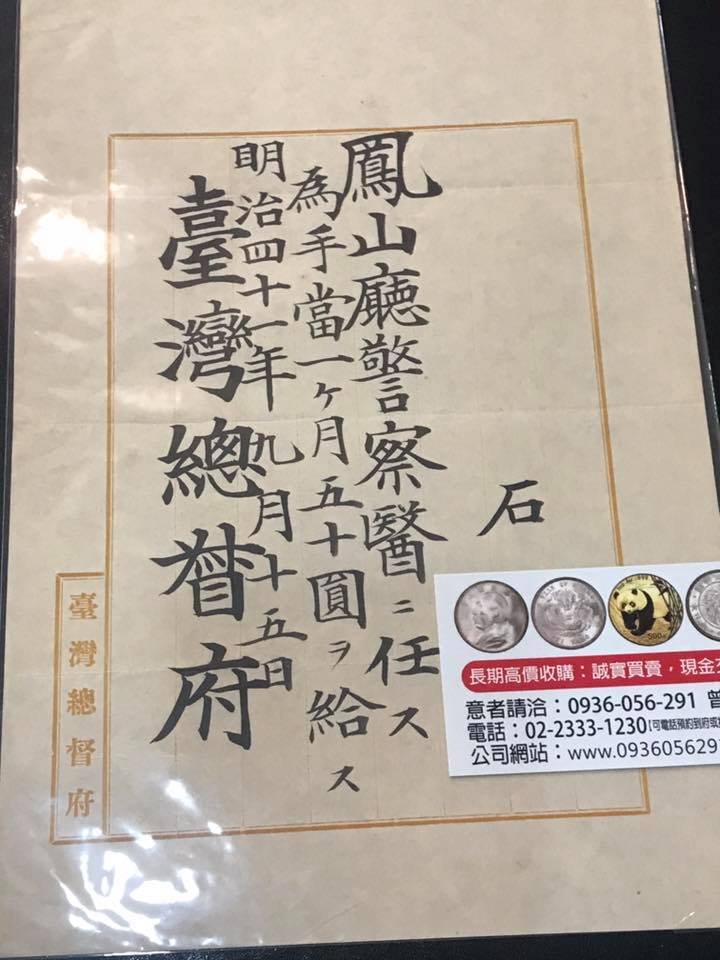 石
鳳山廳警察醫ニ任ス
為手當一ヶ月五十圓ヲ給ス
明治四十一年九月十五日
臺灣總督府
臺灣總督府
長期高價收購：誠實買賣，現金
意者請洽：0936-056-291 曾
電話：02-2333-1230【可電話預約到府或
公司網站：www.093605629